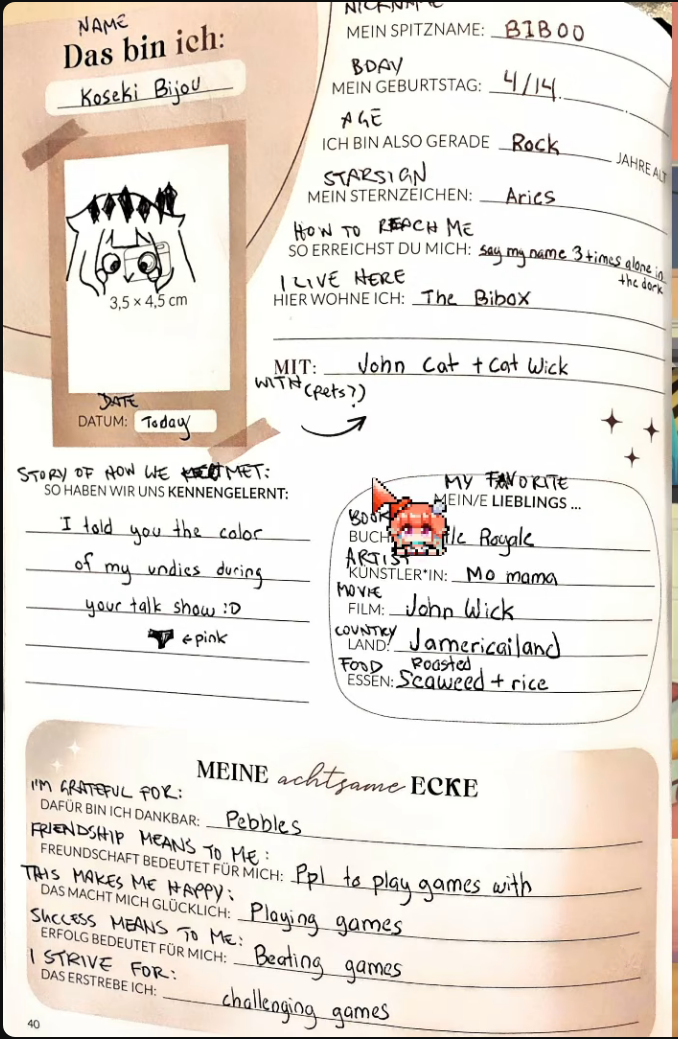 NAME
Das bin ich:
Koseki Bijou
3,5 x 4,5 cm
DATE
DATUM: Today
NICKNAME
MEIN SPITZNAME: BIBOO
BDAY
MEIN GEBURTSTAG: 4/14
AGE
ICH BIN ALSO GERADE Rock JAHRE ALT
STARSIGN
MEIN STERNZEICHEN: Aries
HOW TO REACH ME
SO ERREICHST DU MICH: say my name 3 times alone in
the dark
I LIVE HERE
HIER WOHNE ICH: The Bibox
MIT: John Cat + Cat Wick
WITH (pets?)
STORY OF HOW WE MET:
SO HABEN WIR UNS KENNENGELERNT:
I told you the color
of my undies during
your talk show :D
← pink
MY FAVORITE
MEIN/E LIEBLINGS ...
BOOK
BUCH Royale
ARTIST
KÜNSTLER*IN: Mo mama
MOVIE
FILM: John Wick
COUNTRY
LAND: Jamericailand
FOOD Roasted
ESSEN: Seaweed + rice
MEINE achtsame ECKE
I'M GRATEFUL FOR:
DAFÜR BIN ICH DANKBAR: Pebbles
FRIENDSHIP MEANS TO ME:
FREUNDSCHAFT BEDEUTET FÜR MICH: Ppl to play games with
THIS MAKES ME HAPPY:
DAS MACHT MICH GLÜCKLICH: Playing games
SUCCESS MEANS TO ME:
ERFOLG BEDEUTET FÜR MICH: Beating games
I STRIVE FOR:
DAS ERSTREBE ICH: challenging games
40